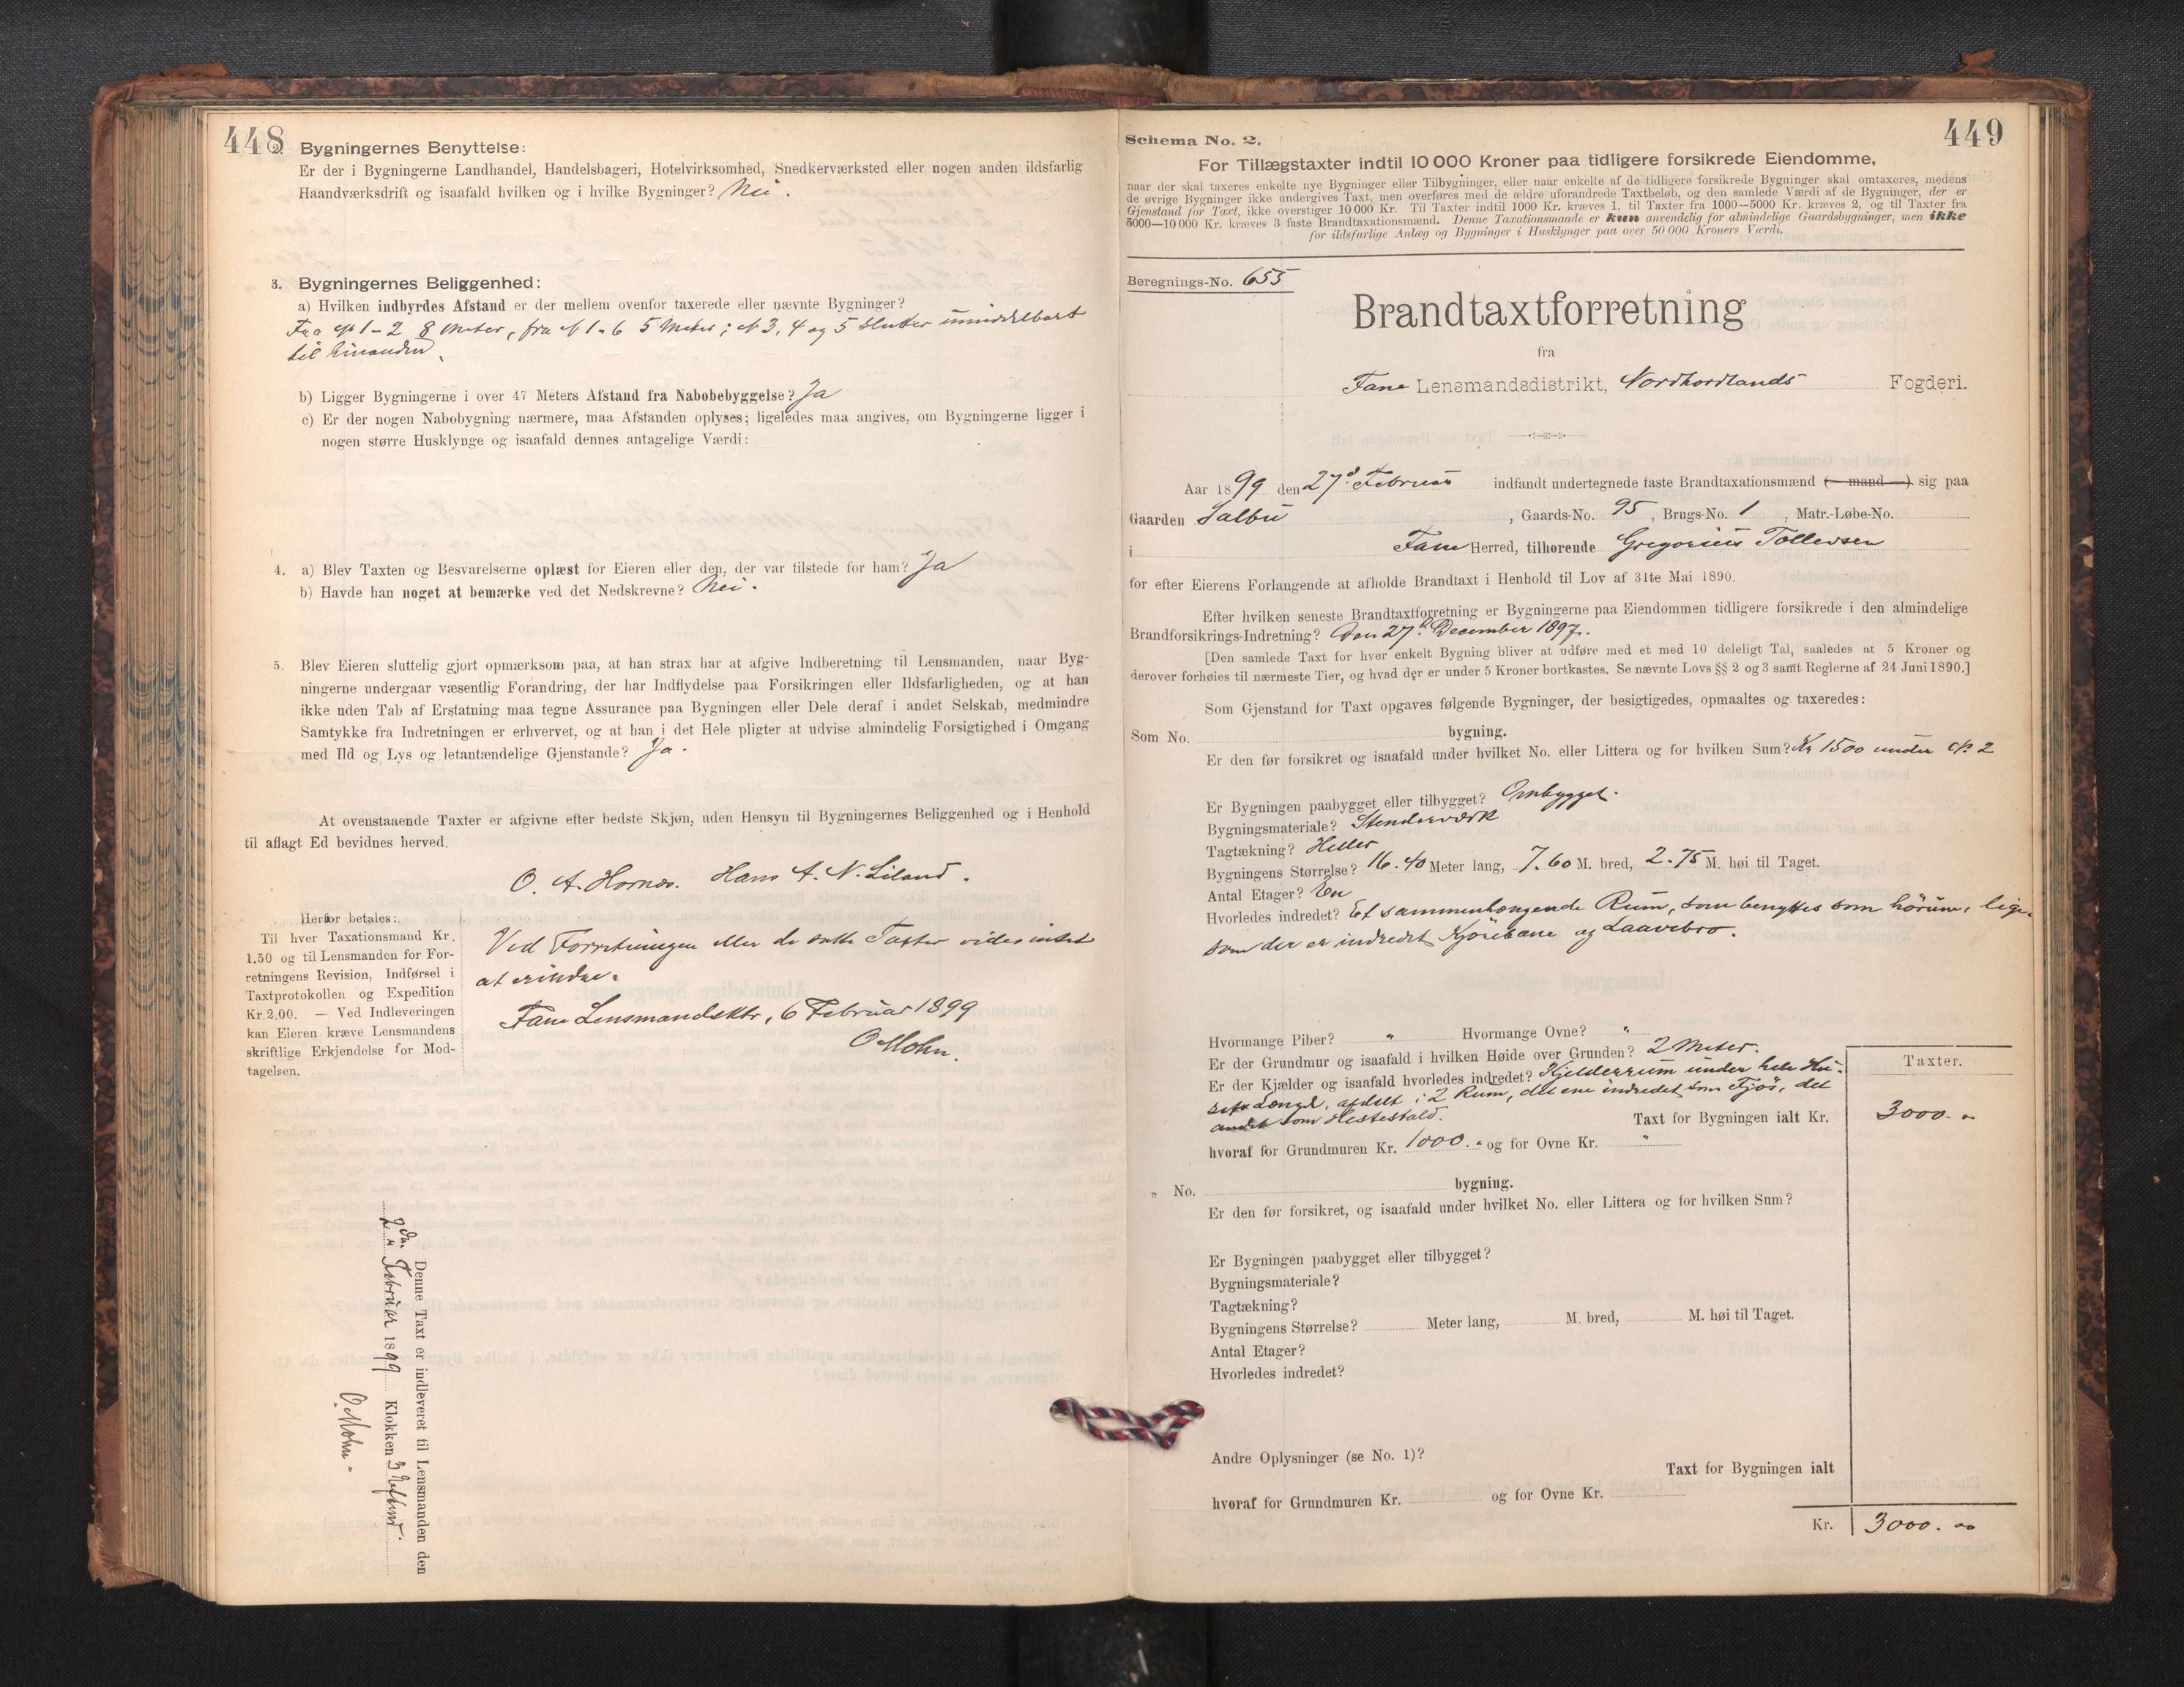 448
2. Bygningernes Benyttelse:
Er der i Bygningerne Landhandel, Handelsbageri, Hotelvirksomhed, Snedkerværksted eller nogen anden ildsfarlig
Haandværksdrift og isaafald hvilken og i hvilke Bygninger? Nei.
3. Bygningernes Beliggenhed:
a) Hvilken indbyrdes Afstand er der mellem ovenfor taxerede eller nævnte Bygninger?
Fra № 1-2 8 Meter, fra № 1-6 5 Meter; № 3, 4 og 5 slutter umiddelbart
til hinanden.
b) Ligger Bygningerne i over 47 Meters Afstand fra Nabobebyggelse? Ja
c) Er der nogen Nabobygning nærmere, maa Afstanden oplyses; ligeledes maa angives, om Bygningerne ligger i
nogen større Husklynge og isaafald dennes antagelige Værdi:
4. a) Blev Taxten og Besvarelserne oplæst for Eieren eller den, der var tilstede for ham? Ja
b) Havde han noget at bemærke ved det Nedskrevne? Nei.
5. Blev Eieren sluttelig gjort opmærksom paa, at han strax har at afgive Indberetning til Lensmanden, naar Byg-
ningerne undergaar væsentlig Forandring, der har Indflydelse paa Forsikringen eller Ildsfarligheden, og at han
ikke uden Tab af Erstatning maa tegne Assurance paa Bygningen eller Dele deraf i andet Selskab, medmindre
Samtykke fra Indretningen er erhvervet, og at han i det Hele pligter at udvise almindelig Forsigtighed i Omgang
med Ild og Lys og letantændelige Gjenstande? Ja.
At ovenstaaende Taxter er afgivne efter bedste Skjøn, uden Hensyn til Bygningernes Beliggenhed og i Henhold
til aflagt Ed bevidnes herved.
O. A. Hornes. Hans A. N. Liland.
Herfor betales:
Til hver Taxationsmand Kr.
1.50 og til Lensmanden for For-
retningens Revision, Indførsel i
Taxtprotokollen og Expedition
Kr. 2,00. — Ved Indleveringen
kan Eieren kræve Lensmandens
skriftlige Erkjendelse for Mod-
tagelsen.
Ved Forretningen eller de satte Taxter vides intet
at erindre.
Fane Lensmandsktr, 6 Februar 1899
O Mohn.
Denne Taxt er indleveret til Lensmanden den
2den Februar 1899 Klokken 3 Eftmd.
O. Mohn.
449
Schema No. 2.
For Tillægstaxter indtil 10 000 Kroner paa tidligere forsikrede Eiendomme,
naar der skal taxeres enkelte nye Bygninger eller Tilbygninger, eller naar enkelte af de tidligere forsikrede Bygninger skal omtaxeres, medens
de øvrige Bygninger ikke undergives Taxt, men overføres med de ældre uforandrede Taxtbeløb, og den samlede Værdi af de Bygninger, der er
Gjenstand for Taxt, ikke overstiger 10 000 Kr. Til Taxter indtil 1000 Kr. kræves 1, til Taxter fra 1000—5000 Kr. kræves 2, og til Taxter fra
5000—10 000 Kr. kræves 3 faste Brandtaxationsmænd. Denne Taxationsmaade er kun anvendelig for almindelige Gaardsbygninger, men ikke
for ildsfarlige Anlæg og Bygninger i Husklynger paa over 50 000 Kroners Værdi.
Beregnings-No. 655
Brandtaxtforretning
fra
Fane Lensmandsdistrikt, Nordhordlands Fogderi.
Aar 1899 den 27d Februar indfandt undertegnede faste Brandtaxationsmænd (— mand —) sig paa
Gaarden Salbu, Gaards-No. 95, Brugs-No. 1, Matr.-Løbe-No.
i Fane Herred, tilhørende Gregorius Tollevsen
for efter Eierens Forlangende at afholde Brandtaxt i Henhold til Lov af 31te Mai 1890.
Efter hvilken seneste Brandtaxtforretning er Bygningerne paa Eiendommen tidligere forsikrede i den almindelige
Brandforsikrings-Indretning? Den 27. December 1897.
[Den samlede Taxt for hver enkelt Bygning bliver at udføre med et med 10 deleligt Tal, saaledes at 5 Kroner og
derover forhøies til nærmeste Tier, og hvad der er under 5 Kroner bortkastes. Se nævnte Lovs §§ 2 og 3 samt Reglerne af 24 Juni 1890.]
Som Gjenstand for Taxt opgaves følgende Bygninger, der besigtigedes, opmaaltes og taxeredes:
Som No. bygning.
Er den før forsikret og isaafald under hvilket No. eller Littera og for hvilken Sum? Kr 1500 under № 2
Er Bygningen paabygget eller tilbygget? Ombygget.
Bygningsmateriale? Stenderværk
Tagtækning? Heller
Bygningens Størrelse? 16.40 Meter lang, 7.60 M. bred, 2.75 M. høi til Taget.
Antal Etager? En
Hvorledes indredet? Et sammenhængende Rum, som benyttes som hørum, lige-
som der er indredet Kjørebane og Laavebro.
Hvormange Piber? " Hvormange Ovne? "
Er der Grundmur og isaafald i hvilken Høide over Grunden? 2 Meter.
Er der Kjælder og isaafald hvorledes indredet? Kjelderrum under hele Hu-
sets Længde, afdelt i 2 Rum, det ene indredet som Fjøs, det
andet som Hestestald. Taxt for Bygningen ialt Kr.
Taxter.
3000. "
hvoraf for Grundmuren Kr. 1000. " og for Ovne Kr. "
" No. bygning.
Er den før forsikret, og isaafald under hvilket No. eller Littera og for hvilken Sum?
Er Bygningen paabygget eller tilbygget?
Bygningsmateriale?
Tagtækning?
Bygningens Størrelse? Meter lang, M. bred, M. høi til Taget.
Antal Etager?
Hvorledes indredet?
Andre Oplysninger (se No. 1)?
Taxt for Bygningen ialt
hvoraf for Grundmuren Kr. og for Ovne Kr.
Kr. 3000. 00